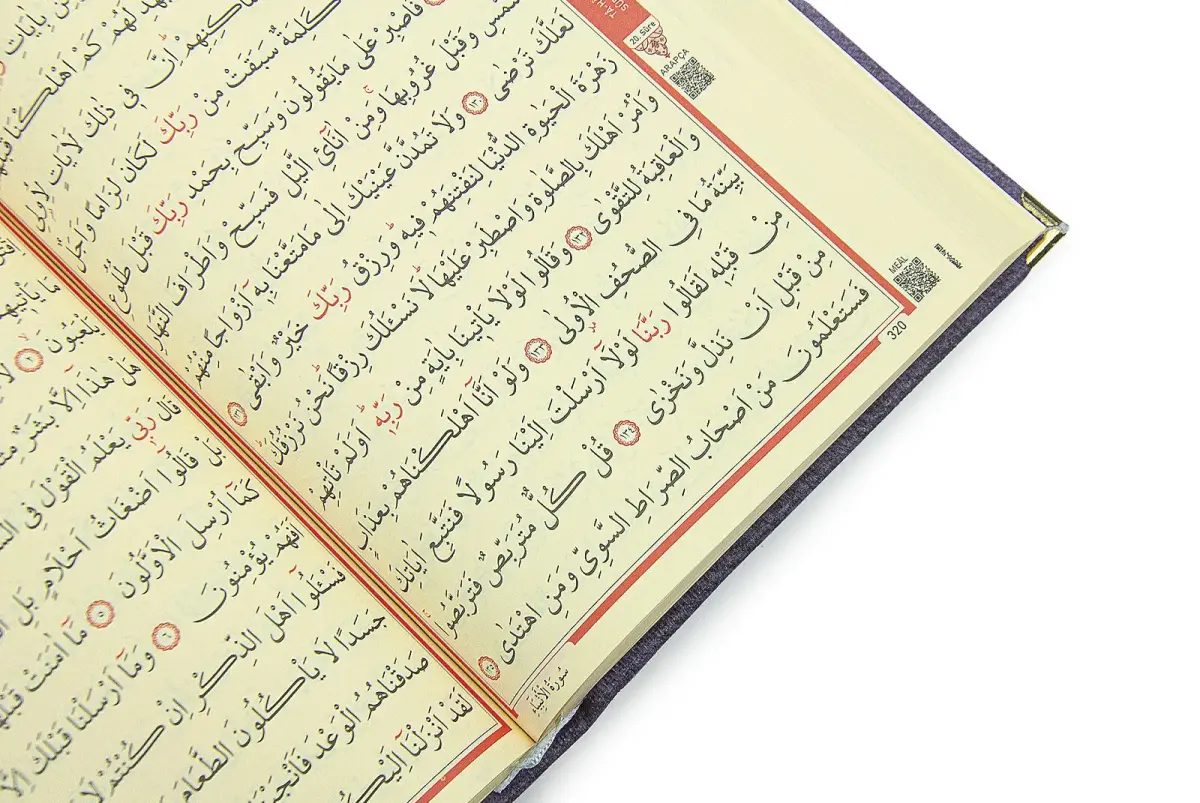 لَهُمْ كَمْ اَهْلَكْنَا
مَسَاكِنِهِمْ اِنَّ فٖى ذٰلِكَ لَاٰيَاتٍ لِاُولِى
كَلِمَةٌ سَبَقَتْ مِنْ رَبِّكَ لَكَانَ لِزَامًا وَاَجَلٌ
فَاصْبِرْ عَلٰى مَايَقُولُونَ وَسَبِّحْ بِحَمْدِ رَبِّكَ قَبْلَ طُلُوعِ
وَقَبْلَ غُرُوبِهَا وَمِنْ اٰنَائِ الَّيْلِ فَسَبِّحْ وَاَطْرَافَ النَّهَارِ
لَعَلَّكَ تَرْضٰى ١٣٠ وَلَا تَمُدَّنَّ عَيْنَيْكَ اِلٰى مَامَتَّعْنَا بِهٖ اَزْوَاجًا مِنْهُمْ
زَهْرَةَ الْحَيٰوةِ الدُّنْيَا لِنَفْتِنَهُمْ فٖيهِ وَرِزْقُ رَبِّكَ خَيْرٌ وَاَبْقٰى ١٣١
وَأْمُرْ اَهْلَكَ بِالصَّلٰوةِ وَاصْطَبِرْ عَلَيْهَا لَا نَسْـَٔلُكَ رِزْقًا نَحْنُ نَرْزُقُكَ
وَالْعَاقِبَةُ لِلتَّقْوٰى ١٣٢ وَقَالُوا لَوْلَا يَأْتٖينَا بِاٰيَةٍ مِنْ رَبِّهٖ اَوَلَمْ تَأْتِهِمْ
بَيِّنَةُ مَا فِى الصُّحُفِ الْاُولٰى ١٣٣ وَلَوْ اَنَّا اَهْلَكْنَاهُمْ بِعَذَابٍ
مِنْ قَبْلِهٖ لَقَالُوا رَبَّنَا لَوْلَا اَرْسَلْتَ اِلَيْنَا رَسُولًا فَنَتَّبِعَ اٰيَاتِكَ
مِنْ قَبْلِ اَنْ نَذِلَّ وَنَخْزٰى ١٣٤ قُلْ كُلٌّ مُتَرَبِّصٌ فَتَرَبَّصُوا
فَسَتَعْلَمُونَ مَنْ اَصْحَابُ الصِّرَاطِ السَّوِىِّ وَمَنِ اهْتَدٰى ١٣٥
20. Sûre
ARAPÇA
MEÂL
320
سُورَةُ الْاَنْبِيَاءِ
يَلْعَبُونَ
هَلْ هٰذَا اِلَّا بَشَرٌ
قَالَ رَبّٖى يَعْلَمُ الْقَوْلَ فِى
بَلْ قَالُوا اَضْغَاثُ اَحْلَامٍ بَلِ
كَمَا اُرْسِلَ الْاَوَّلُونَ ٥ مَا اٰمَنَتْ
اَفَهُمْ يُؤْمِنُونَ ٦ وَمَا اَرْسَلْنَا قَبْلَكَ اِلَّا
فَسْـَٔلُوا اَهْلَ الذِّكْرِ اِنْ كُنْتُمْ لَا
جَسَدًا لَا يَأْكُلُونَ الطَّعَامَ
صَدَقْنَاهُمُ الْوَعْدَ
لَقَدْ اَنْزَلْنَا